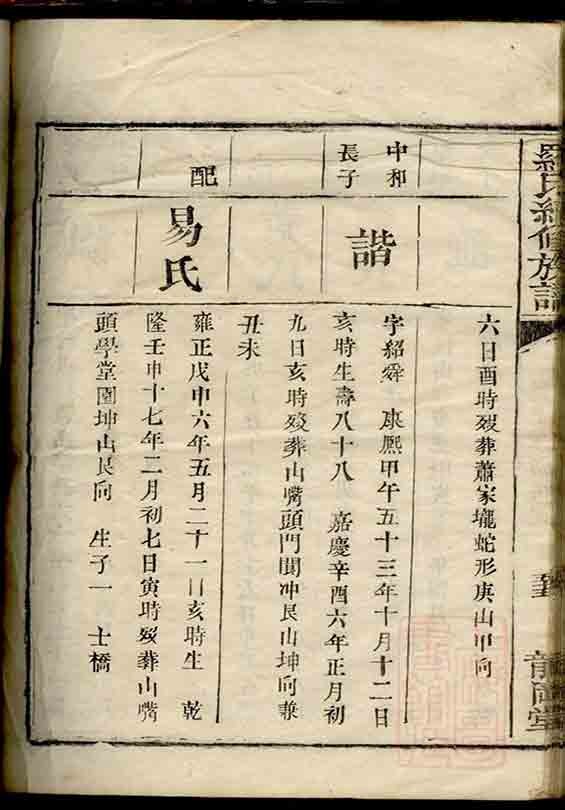 羅氏續修族譜
六日酉時歿葬蕭家壠蛇形庚山甲向
中和
長子
諧
字紹舜 康熙甲午五十三年十月十二日
亥時生壽八十八 嘉慶辛酉六年正月初
九日亥時歿葬山嘴頭門閬冲艮山坤向兼
丑未
配
易氏
雍正戊申六年五月二十一日亥時生 乾
隆壬申十七年二月初七日寅時歿葬山嘴
頭學堂園坤山艮向 生子一 士橋